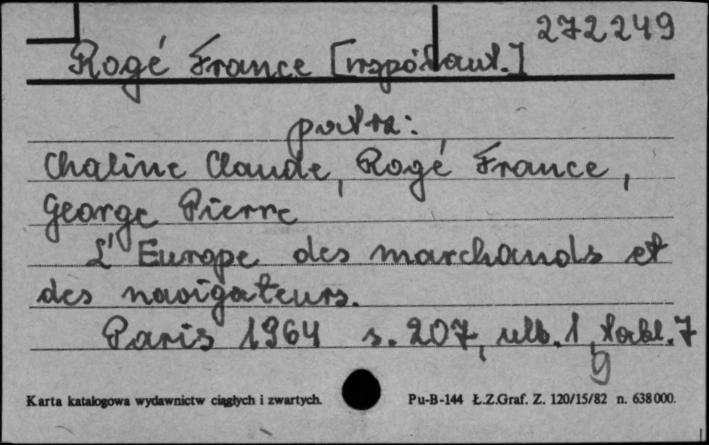 272249
Rogé France [współaut.]
patrz:
Chaline Claude, Rogé France,
George Pierre
L'Europe des marchands et
des navigateurs.
Paris 1964 s. 207, ulb. 1, tabl. 7
9
Karta katalogowa wydawnictw ciągłych i zwartych. Pu-B-144 Ł.Z.Graf. Z. 120/15/82 n. 638000.